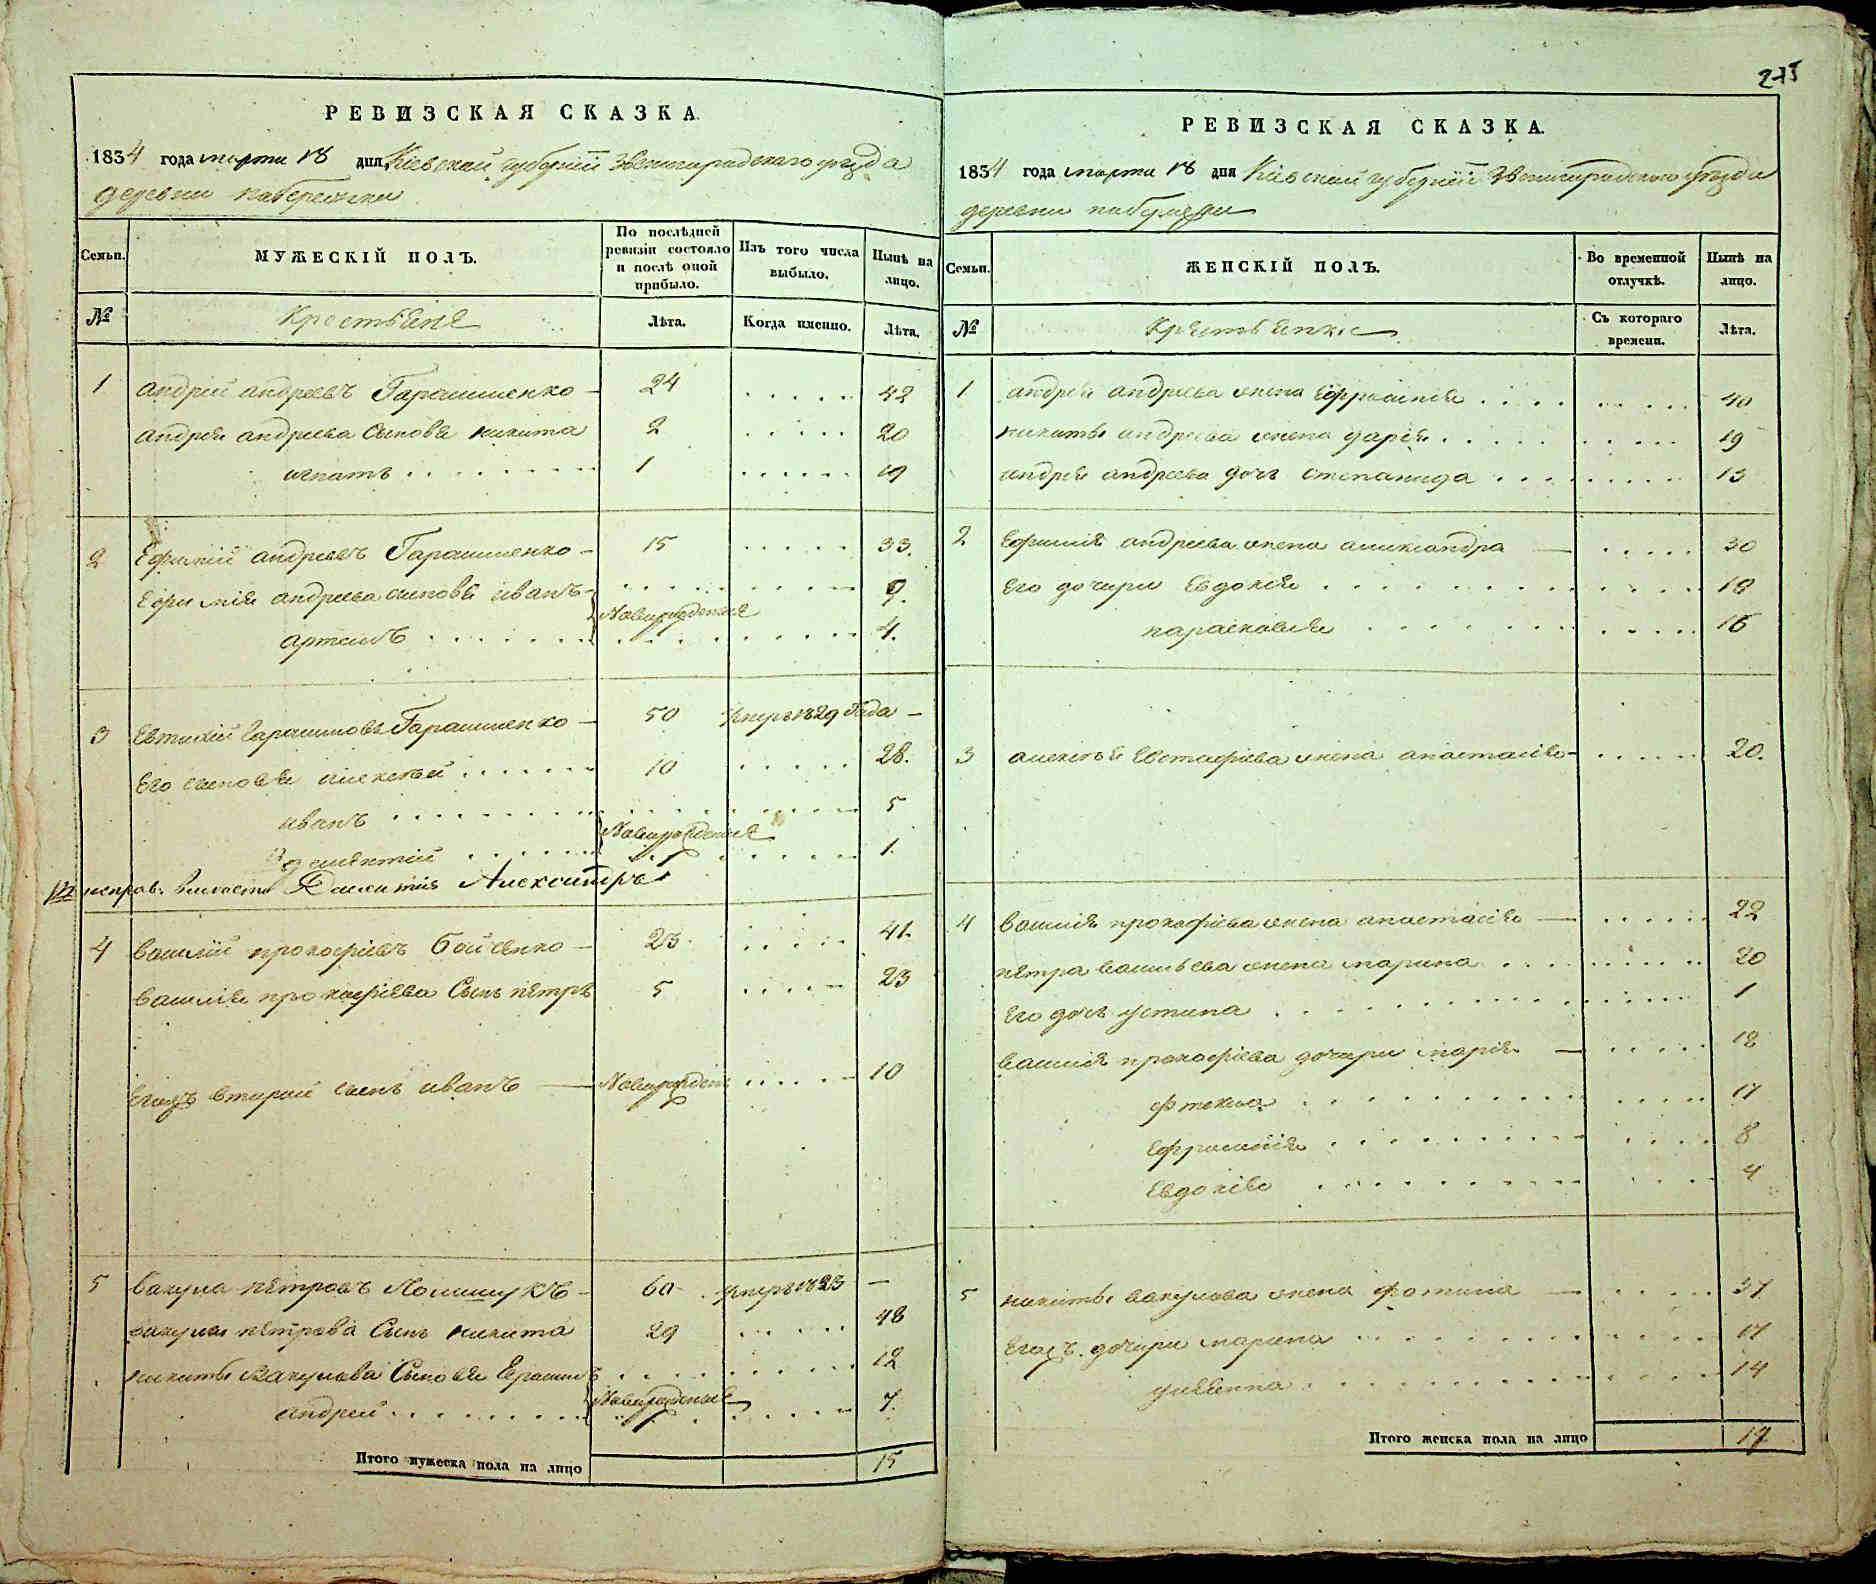 РЕВИЗСКАЯ СКАЗКА.
1834 года марта 18 дня, Кіевской губерніи Звенигородскаго уѣзда
деревни
Семьи.
МУЖЕСКІЙ ПОЛЪ.
По послѣдней ревизіи состояло и послѣ оной прибыло.
Изъ того числа выбыло.
Нынѣ на лицо.
№
Крестьяне
Лѣта.
Когда именно.
Лѣта.
1 андрей андреевъ Гарашченко 24 42
андрея андреева сыновья никита 2 20
игнатъ 1 19
2 Ефимій андреевъ Гарашченко 15 33.
Ефимія андреева сыновья иванъ 9.
Новорожденные
артемъ 4.
3 Евтихій Гарашченко 50 умеръ 1829 Года
Его сыновья алексѣй 10 28.
иванъ 5
Новорожденные
1.
Александръ
4 василій прокофіевъ бойченко 23 41.
василія прокофіева Сынъ петръ 5 23
вторый сынъ иванъ 10
5 вакула петровъ 60 умеръ 1823
вакулы петрова Сынъ никита 29 48
никиты вакулова Сыновья 12
Новорожденные
андрей 7.
Итого мужеска пола на лицо 15
275
РЕВИЗСКАЯ СКАЗКА.
1834 года марта 18 дня Кіевской губерніи Звенигородскаго уѣзда
деревни
Семьи.
ЖЕНСКІЙ ПОЛЪ.
Во временной отлучкѣ.
Нынѣ на лицо.
№
Крестьянки
Съ котораго времени.
Лѣта.
1 андрея андреева жена Ефросинія 40
никиты андреева жена дарія 19
андрея андреева дочь степанида 13
2 Ефимія андреева жена александра 30
Его дочери Евдокія 18
парасковія 16
3 алексѣя жена анастасія 20.
4 василія прокофіева жена анастасія 22
петра васильева жена марина 20
Его дочь устина 1
василія прокофіева дочери марія 18
17
Ефросинія 8
Евдокія 4
5 никиты вакулова жена 37
дочери марина 17
14
Итого женска пола на лицо 17